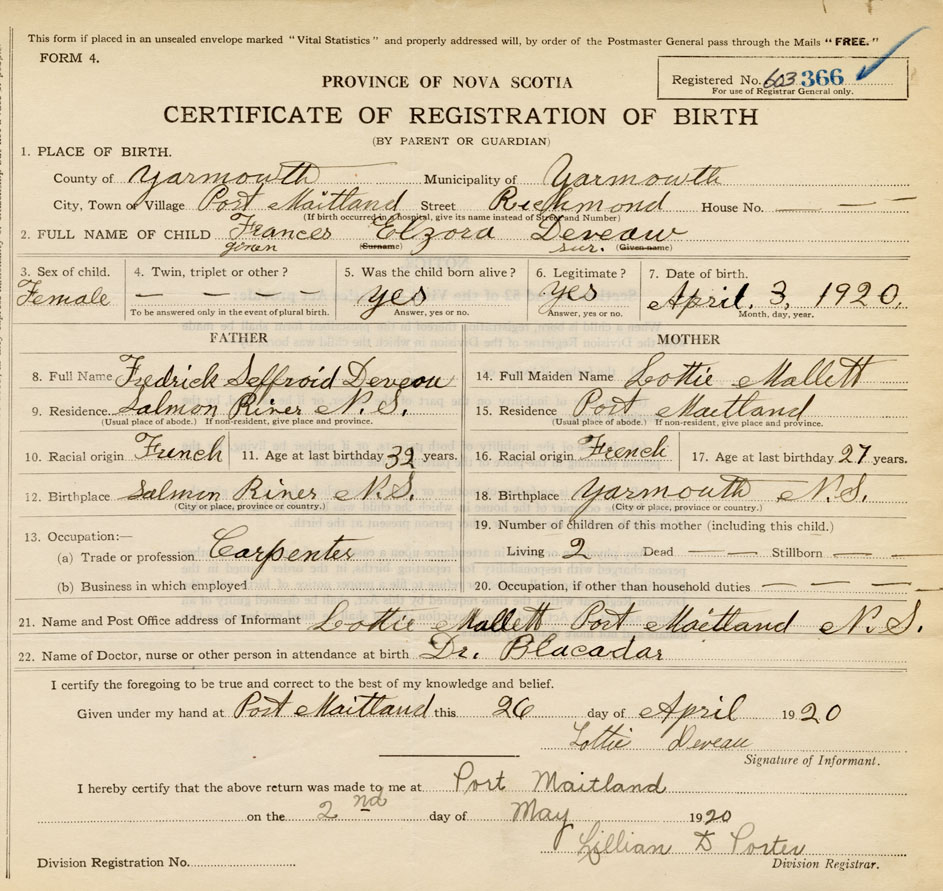 This form if placed in an unsealed envelope marked "Vital Statistics" and properly addressed will, by order of the Postmaster General pass through the Mails "FREE."
FORM 4.
Registered No. 603 366
For use of Registrar General only.
PROVINCE OF NOVA SCOTIA
CERTIFICATE OF REGISTRATION OF BIRTH
(BY PARENT OR GUARDIAN)
1. PLACE OF BIRTH.
County of Yarmouth Municipality of Yarmouth
City, Town or Village Port Maitland Street Richmond House No. — — —
(If birth occurred in a hospital, give its name instead of Street and Number)
2. FULL NAME OF CHILD Frances Elzora Deveau
given (Surname) sur. (Given name)
3. Sex of child. 4. Twin, triplet or other? 5. Was the child born alive? 6. Legitimate? 7. Date of birth.
Female — — — — yes yes April. 3, 1920.
To be answered only in the event of plural birth. Answer, yes or no. Answer, yes or no. Month, day, year.
FATHER MOTHER
8. Full Name Fredrick Seffroid Deveau 14. Full Maiden Name Lottie Mallett
9. Residence. Salmon River N.S. 15. Residence Port Maitland
(Usual place of abode.) If non-resident, give place and province. (Usual place of abode.) If non-resident, give place and province.
10. Racial origin French 11. Age at last birthday 32 years. 16. Racial origin French 17. Age at last birthday 27 years.
12. Birthplace Salmon River N.S. 18. Birthplace Yarmouth N.S.
(City or place, province or country.) (City or place, province or country.)
13. Occupation:— 19. Number of children of this mother (including this child.)
(a) Trade or profession Carpenter Living 2 Dead — — Stillborn — —
(b) Business in which employed 20. Occupation, if other than household duties — — — —
21. Name and Post Office address of Informant Lottie Mallett Port Maitland N.S.
22. Name of Doctor, nurse or other person in attendance at birth Dr. Blacadar
I certify the foregoing to be true and correct to the best of my knowledge and belief.
Given under my hand at Port Maitland this 26 day of April 1920
Lottie Deveau
Signature of Informant.
I hereby certify that the above return was made to me at Port Maitland
on the 2nd day of May 1920
Lillian D Porter
Division Registration No. Division Registrar.